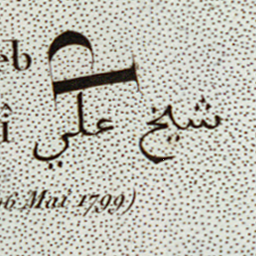 eb
شيخ علي
06 Mai 1799)